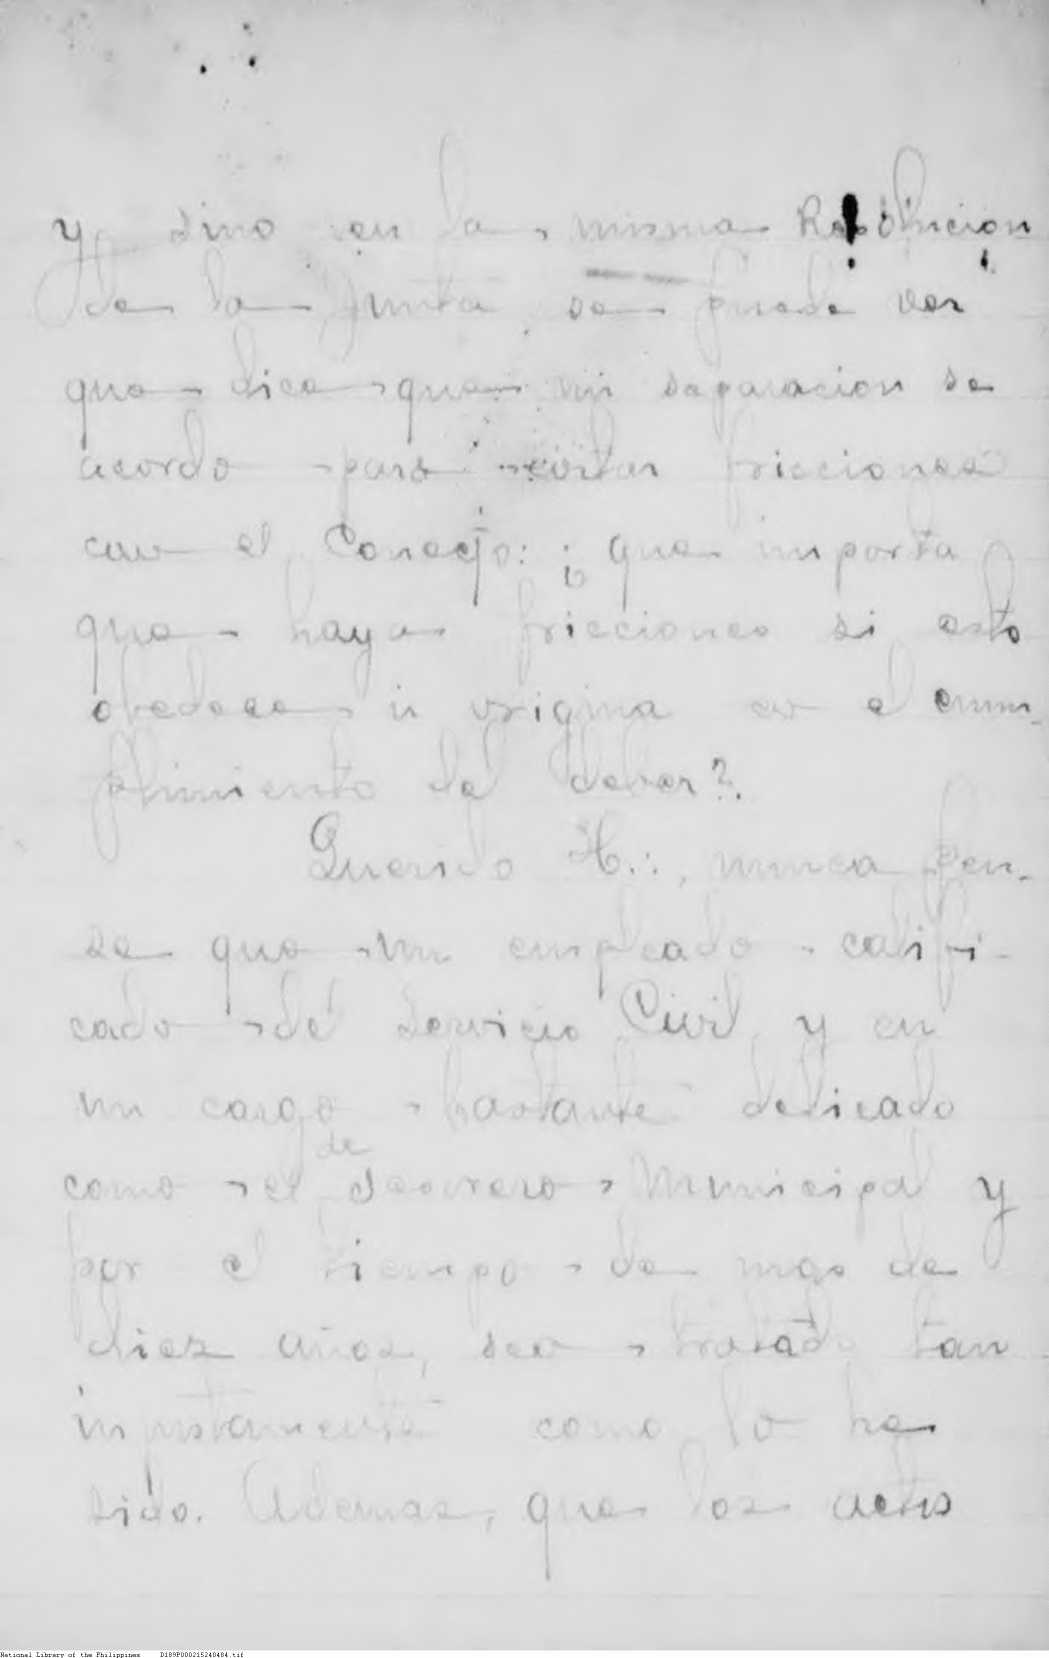 y sino en la misma Resolucion
de la Junta se puede ver
que dice que mi separacion se
acordo para evitar fricciones
con el Concejo: ¿que importa
que haya fricciones si esto
obedece u origina en el cum-
plimiento del deber?.
Querido H.:, nunca pen-
se que un empleado califi-
cado de Servicio Civil y en
un cargo bastante delicado
como el de Tesorero Municipal y
por el tiempo de mas de
diez años, sea tratado tan
injustamente como lo he
sido. Ademas, que los actos
National Library of the Philippines D189P000215240484.tif